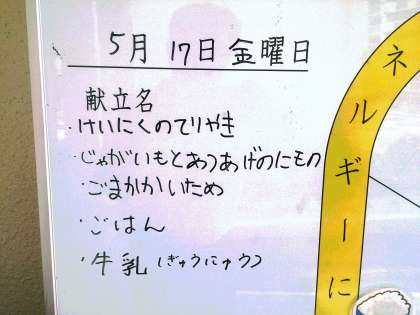 5月 17日 金曜日
献立名
・けいにくのてりやき
・じゃがいもとあつあげのにもの
・ごまかかいため
・ごはん
・牛乳(ぎゅうにゅう)
ネルギーに